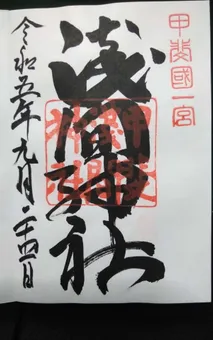 甲斐國一宮
浅間神社
令和五年九月二十四日